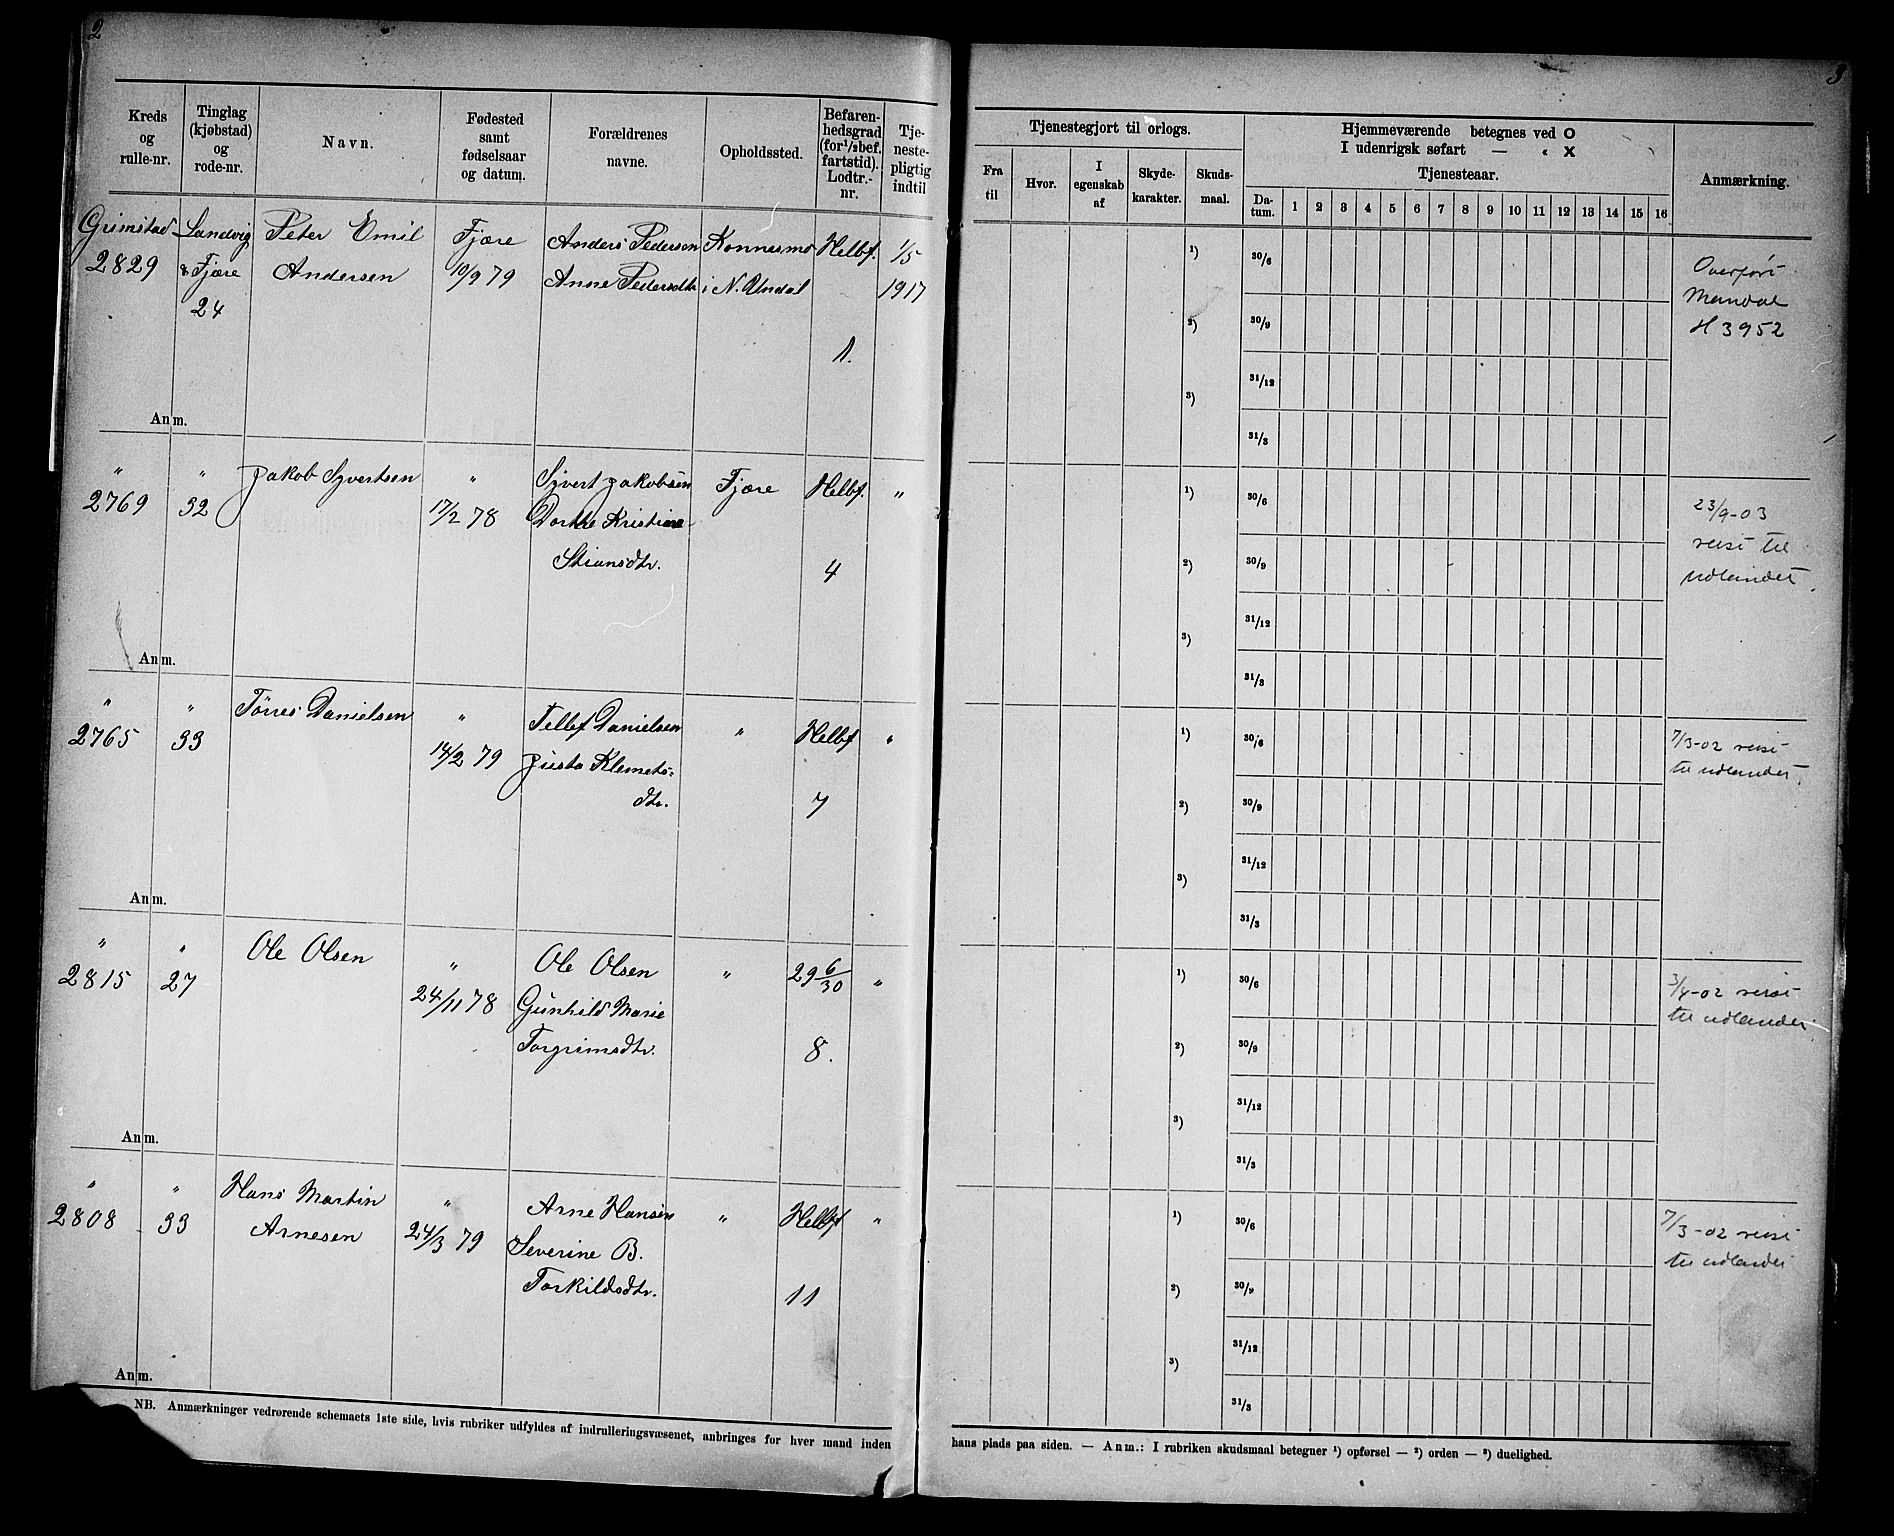 2
Kreds og rulle-nr.
Tinglag (kjøbstad) og rode-nr.
Navn.
Fødested samt fødselsaar og datum.
Forældrenes navne.
Opholdssted.
Befaren-hedsgrad (for 1/2 bef. fartstid). Lodtr.-nr.
Tje-neste-pligtig indtil
Grimstad Landvig Peter Emil Fjære Anders Pedersen Konnesmo Helbf. 1/5
2829 & Fjære Andersen 10/9 79 Anne Pedersdtr i N. Undal 1917
24
1.
Anm.
" " Jakob Syvertsen " Syvert Jakobsen Fjære Helbf. "
2769 32 17/2 78 Dorthe Kristiane
Stiansdtr. 4
Anm.
" " Törres Danielsen " Tellef Danielsen " Helbf "
2765 33 14/2 79 Justa Klemets-
dtr. 7
Anm.
" " Ole Olsen " Ole Olsen " 29 6/30 "
2815 27 24/11 78 Gunhild Marie
Torgrimsdtr. 8.
Anm.
" " Hans Martin " Arne Hansen " Helbf "
2808 33 Arnesen 24/3 79 Severine B.
Torkildsdtr. 11
Anm.
NB. Anmærkninger vedrørende schemaets 1ste side, hvis rubriker udfyldes af indrulleringsvæsenet, anbringes for hver mand inden
3
Tjenestegjort til orlogs.
Hjemmeværende betegnes ved O
I udenrigsk søfart — " X
Tjenesteaar.
Anmærkning.
Fra til
Hvor.
I egenskab af
Skyde-karakter.
Skuds-maal.
Da-tum. 1 2 3 4 5 6 7 8 9 10 11 12 13 14 15 16
1) 30/6
2) 30/9
31/12
3)
31/3
Overført
Mandal
H 3952
1) 30/6
2) 30/9
31/12
3)
31/3
23/9-03
reist til
udlandet
1) 30/6
2) 30/9
31/12
3)
31/3
7/3-02 reist
til udlandet
1) 30/6
2) 30/9
31/12
3)
31/3
3/4-02 reist
til udlandet
1) 30/6
2) 30/9
31/12
3)
31/3
7/3-02 reist
til udlandet
hans plads paa siden. — Anm.: I rubriken skudsmaal betegner 1) opførsel — 2) orden — 3) duelighed.